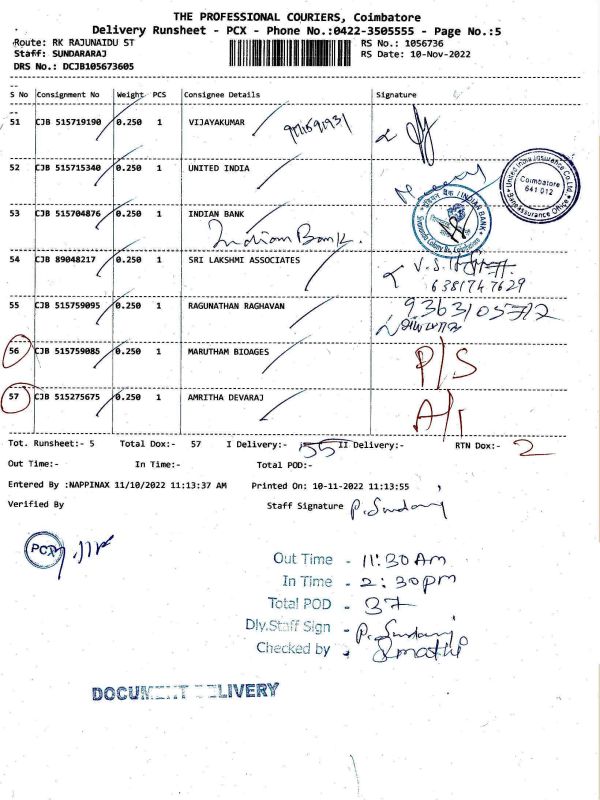 THE PROFESSIONAL COURIERS, Coimbatore
Delivery Runsheet - PCX - Phone No.:0422-3505555 - Page No.:5
Route: RK RAJUNAIDU ST
RS No.: 1056736
Staff: SUNDARARAJ
RS Date: 10-Nov-2022
DRS No.: DCJB105673605
S No Consignment No Weight PCS Consignee Details Signature
51 CJB 515719190 0.250 1 VIJAYAKUMAR
52 CJB 515715340 0.250 1 UNITED INDIA
United India Insurance Co. Ltd.
Coimbatore
641 012
53 CJB 515704876 0.250 1 INDIAN BANK
Indian Bank.
INDIAN BANK
54 CJB 89048217 0.250 1 SRI LAKSHMI ASSOCIATES
6381747629
55 CJB 515759095 0.250 1 RAGUNATHAN RAGHAVAN
9363105772
56 CJB 515759085 0.250 1 MARUTHAM BIOAGES P/S
57 CJB 515275675 0.250 1 AMRITHA DEVARAJ
Tot. Runsheet:- 5 Total Dox:- 57 I Delivery:- 55 II Delivery:- RTN Dox:- 2
Out Time:- In Time:- Total POD:-
Entered By :NAPPINAX 11/10/2022 11:13:37 AM Printed On: 10-11-2022 11:13:55
Verified By Staff Signature P. Sundaraj
PCX
Out Time - 11:30 Am
In Time - 2:30pm
Total POD - 37
Dly.Staff Sign - P. Sundaraj
Checked by
DOCUMENT DELIVERY